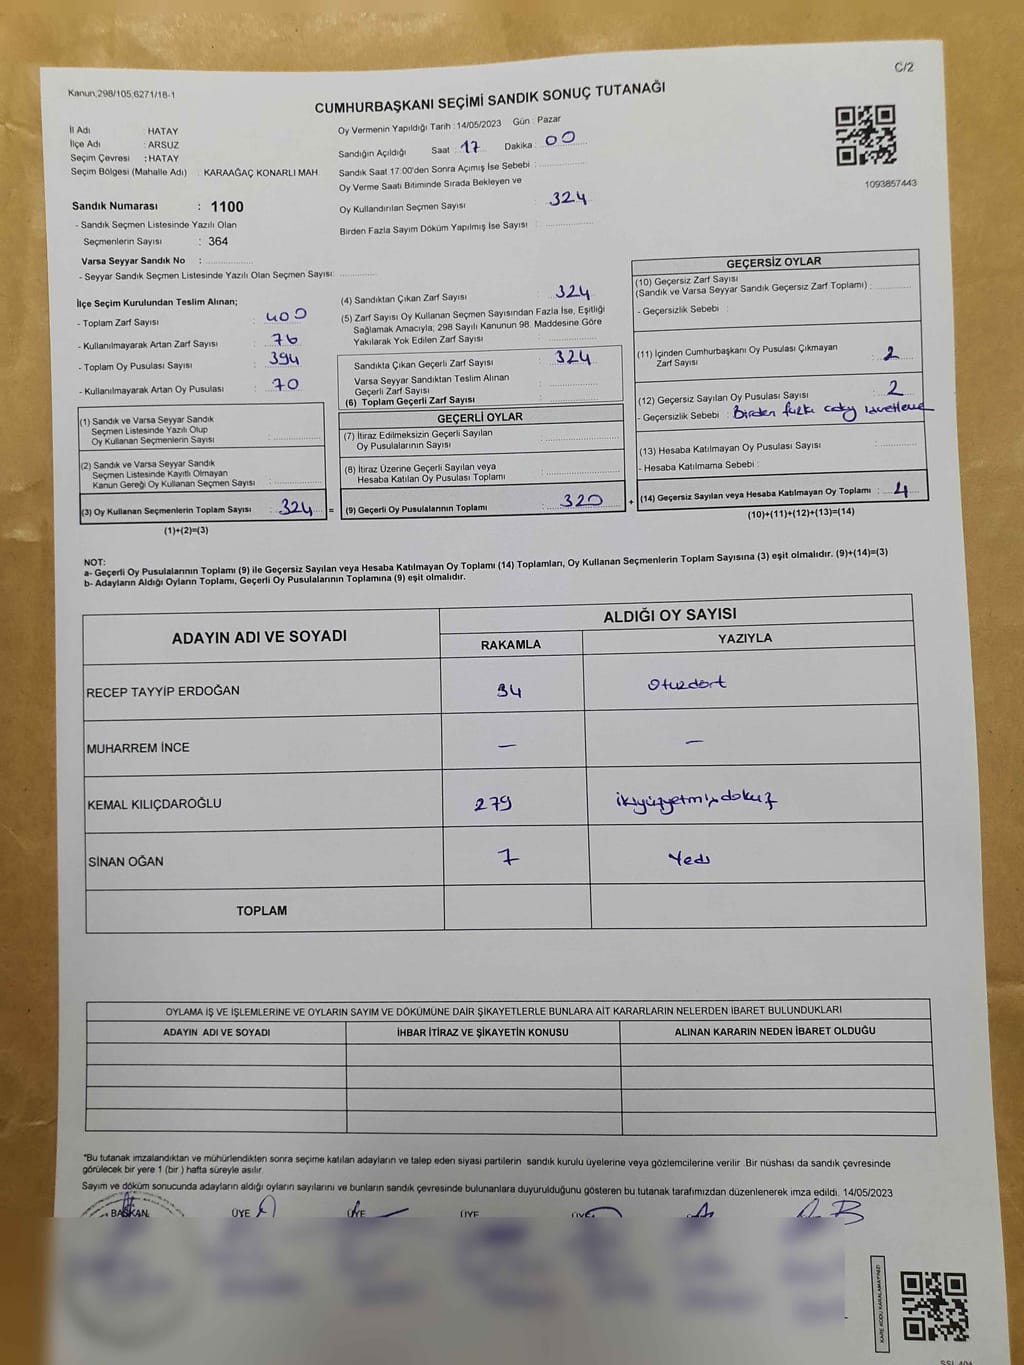 C/2
Kanun,298/105,6271/18-1
CUMHURBAŞKANI SEÇİMİ SANDIK SONUÇ TUTANAĞI
İl Adı : HATAY
İlçe Adı : ARSUZ
Seçim Çevresi : HATAY
Seçim Bölgesi (Mahalle Adı) : KARAAĞAÇ KONARLI MAH.
Oy Vermenin Yapıldığı Tarih : 14/05/2023 Gün : Pazar
Sandığın Açıldığı Saat : 17 Dakika : 00
Sandık Saat 17:00'den Sonra Açılmış İse Sebebi :
Oy Verme Saati Bitiminde Sırada Bekleyen ve
Oy Kullandırılan Seçmen Sayısı : 324
Birden Fazla Sayım Döküm Yapılmış İse Sayısı :
1093857443
Sandık Numarası : 1100
- Sandık Seçmen Listesinde Yazılı Olan
Seçmenlerin Sayısı : 364
Varsa Seyyar Sandık No :
- Seyyar Sandık Seçmen Listesinde Yazılı Olan Seçmen Sayısı:
İlçe Seçim Kurulundan Teslim Alınan;
- Toplam Zarf Sayısı : 400
- Kullanılmayarak Artan Zarf Sayısı : 76
- Toplam Oy Pusulası Sayısı : 394
- Kullanılmayarak Artan Oy Pusulası : 70
(1) Sandık ve Varsa Seyyar Sandık
Seçmen Listesinde Yazılı Olup
Oy Kullanan Seçmenlerin Sayısı :
(2) Sandık ve Varsa Seyyar Sandık
Seçmen Listesinde Kayıtlı Olmayan
Kanun Gereği Oy Kullanan Seçmen Sayısı :
(3) Oy Kullanan Seçmenlerin Toplam Sayısı : 324 =
(1)+(2)=(3)
(4) Sandıktan Çıkan Zarf Sayısı : 324
(5) Zarf Sayısı Oy Kullanan Seçmen Sayısından Fazla İse, Eşitliği
Sağlamak Amacıyla; 298 Sayılı Kanunun 98. Maddesine Göre
Yakılarak Yok Edilen Zarf Sayısı :
Sandıkta Çıkan Geçerli Zarf Sayısı : 324
Varsa Seyyar Sandıktan Teslim Alınan
Geçerli Zarf Sayısı :
(6) Toplam Geçerli Zarf Sayısı :
GEÇERLİ OYLAR
(7) İtiraz Edilmeksizin Geçerli Sayılan
Oy Pusulalarının Sayısı :
(8) İtiraz Üzerine Geçerli Sayılan veya
Hesaba Katılan Oy Pusulası Toplamı :
(9) Geçerli Oy Pusulalarının Toplamı : 320 +
GEÇERSİZ OYLAR
(10) Geçersiz Zarf Sayısı
(Sandık ve Varsa Seyyar Sandık Geçersiz Zarf Toplamı) :
- Geçersizlik Sebebi :
(11) İçinden Cumhurbaşkanı Oy Pusulası Çıkmayan
Zarf Sayısı : 2
(12) Geçersiz Sayılan Oy Pusulası Sayısı : 2
- Geçersizlik Sebebi : Birden fazla aday
(13) Hesaba Katılmayan Oy Pusulası Sayısı :
- Hesaba Katılmama Sebebi :
(14) Geçersiz Sayılan veya Hesaba Katılmayan Oy Toplamı : 4
(10)+(11)+(12)+(13)=(14)
NOT:
a- Geçerli Oy Pusulalarının Toplamı (9) ile Geçersiz Sayılan veya Hesaba Katılmayan Oy Toplamı (14) Toplamları, Oy Kullanan Seçmenlerin Toplam Sayısına (3) eşit olmalıdır. (9)+(14)=(3)
b- Adayların Aldığı Oyların Toplamı, Geçerli Oy Pusulalarının Toplamına (9) eşit olmalıdır.
ADAYIN ADI VE SOYADI
ALDIĞI OY SAYISI
RAKAMLA YAZIYLA
RECEP TAYYİP ERDOĞAN 34 Otuzdört
MUHARREM İNCE — —
KEMAL KILIÇDAROĞLU 279 ikiyüzyetmişdokuz
SİNAN OĞAN 7 Yedi
TOPLAM
OYLAMA İŞ VE İŞLEMLERİNE VE OYLARIN SAYIM VE DÖKÜMÜNE DAİR ŞİKAYETLERLE BUNLARA AİT KARARLARIN NELERDEN İBARET BULUNDUKLARI
ADAYIN ADI VE SOYADI İHBAR İTİRAZ VE ŞİKAYETİN KONUSU ALINAN KARARIN NEDEN İBARET OLDUĞU
*Bu tutanak imzalandıktan ve mühürlendikten sonra seçime katılan adayların ve talep eden siyasi partilerin sandık kurulu üyelerine veya gözlemcilerine verilir .Bir nüshası da sandık çevresinde
görülecek bir yere 1 (bir ) hafta süreyle asılır.
Sayım ve döküm sonucunda adayların aldığı oyların sayılarını ve bunların sandık çevresinde bulunanlara duyurulduğunu gösteren bu tutanak tarafımızdan düzenlenerek imza edildi. 14/05/2023
BAŞKAN ÜYE ÜYE ÜYE ÜYE
KARE KODU KARALAMAYINIZ!